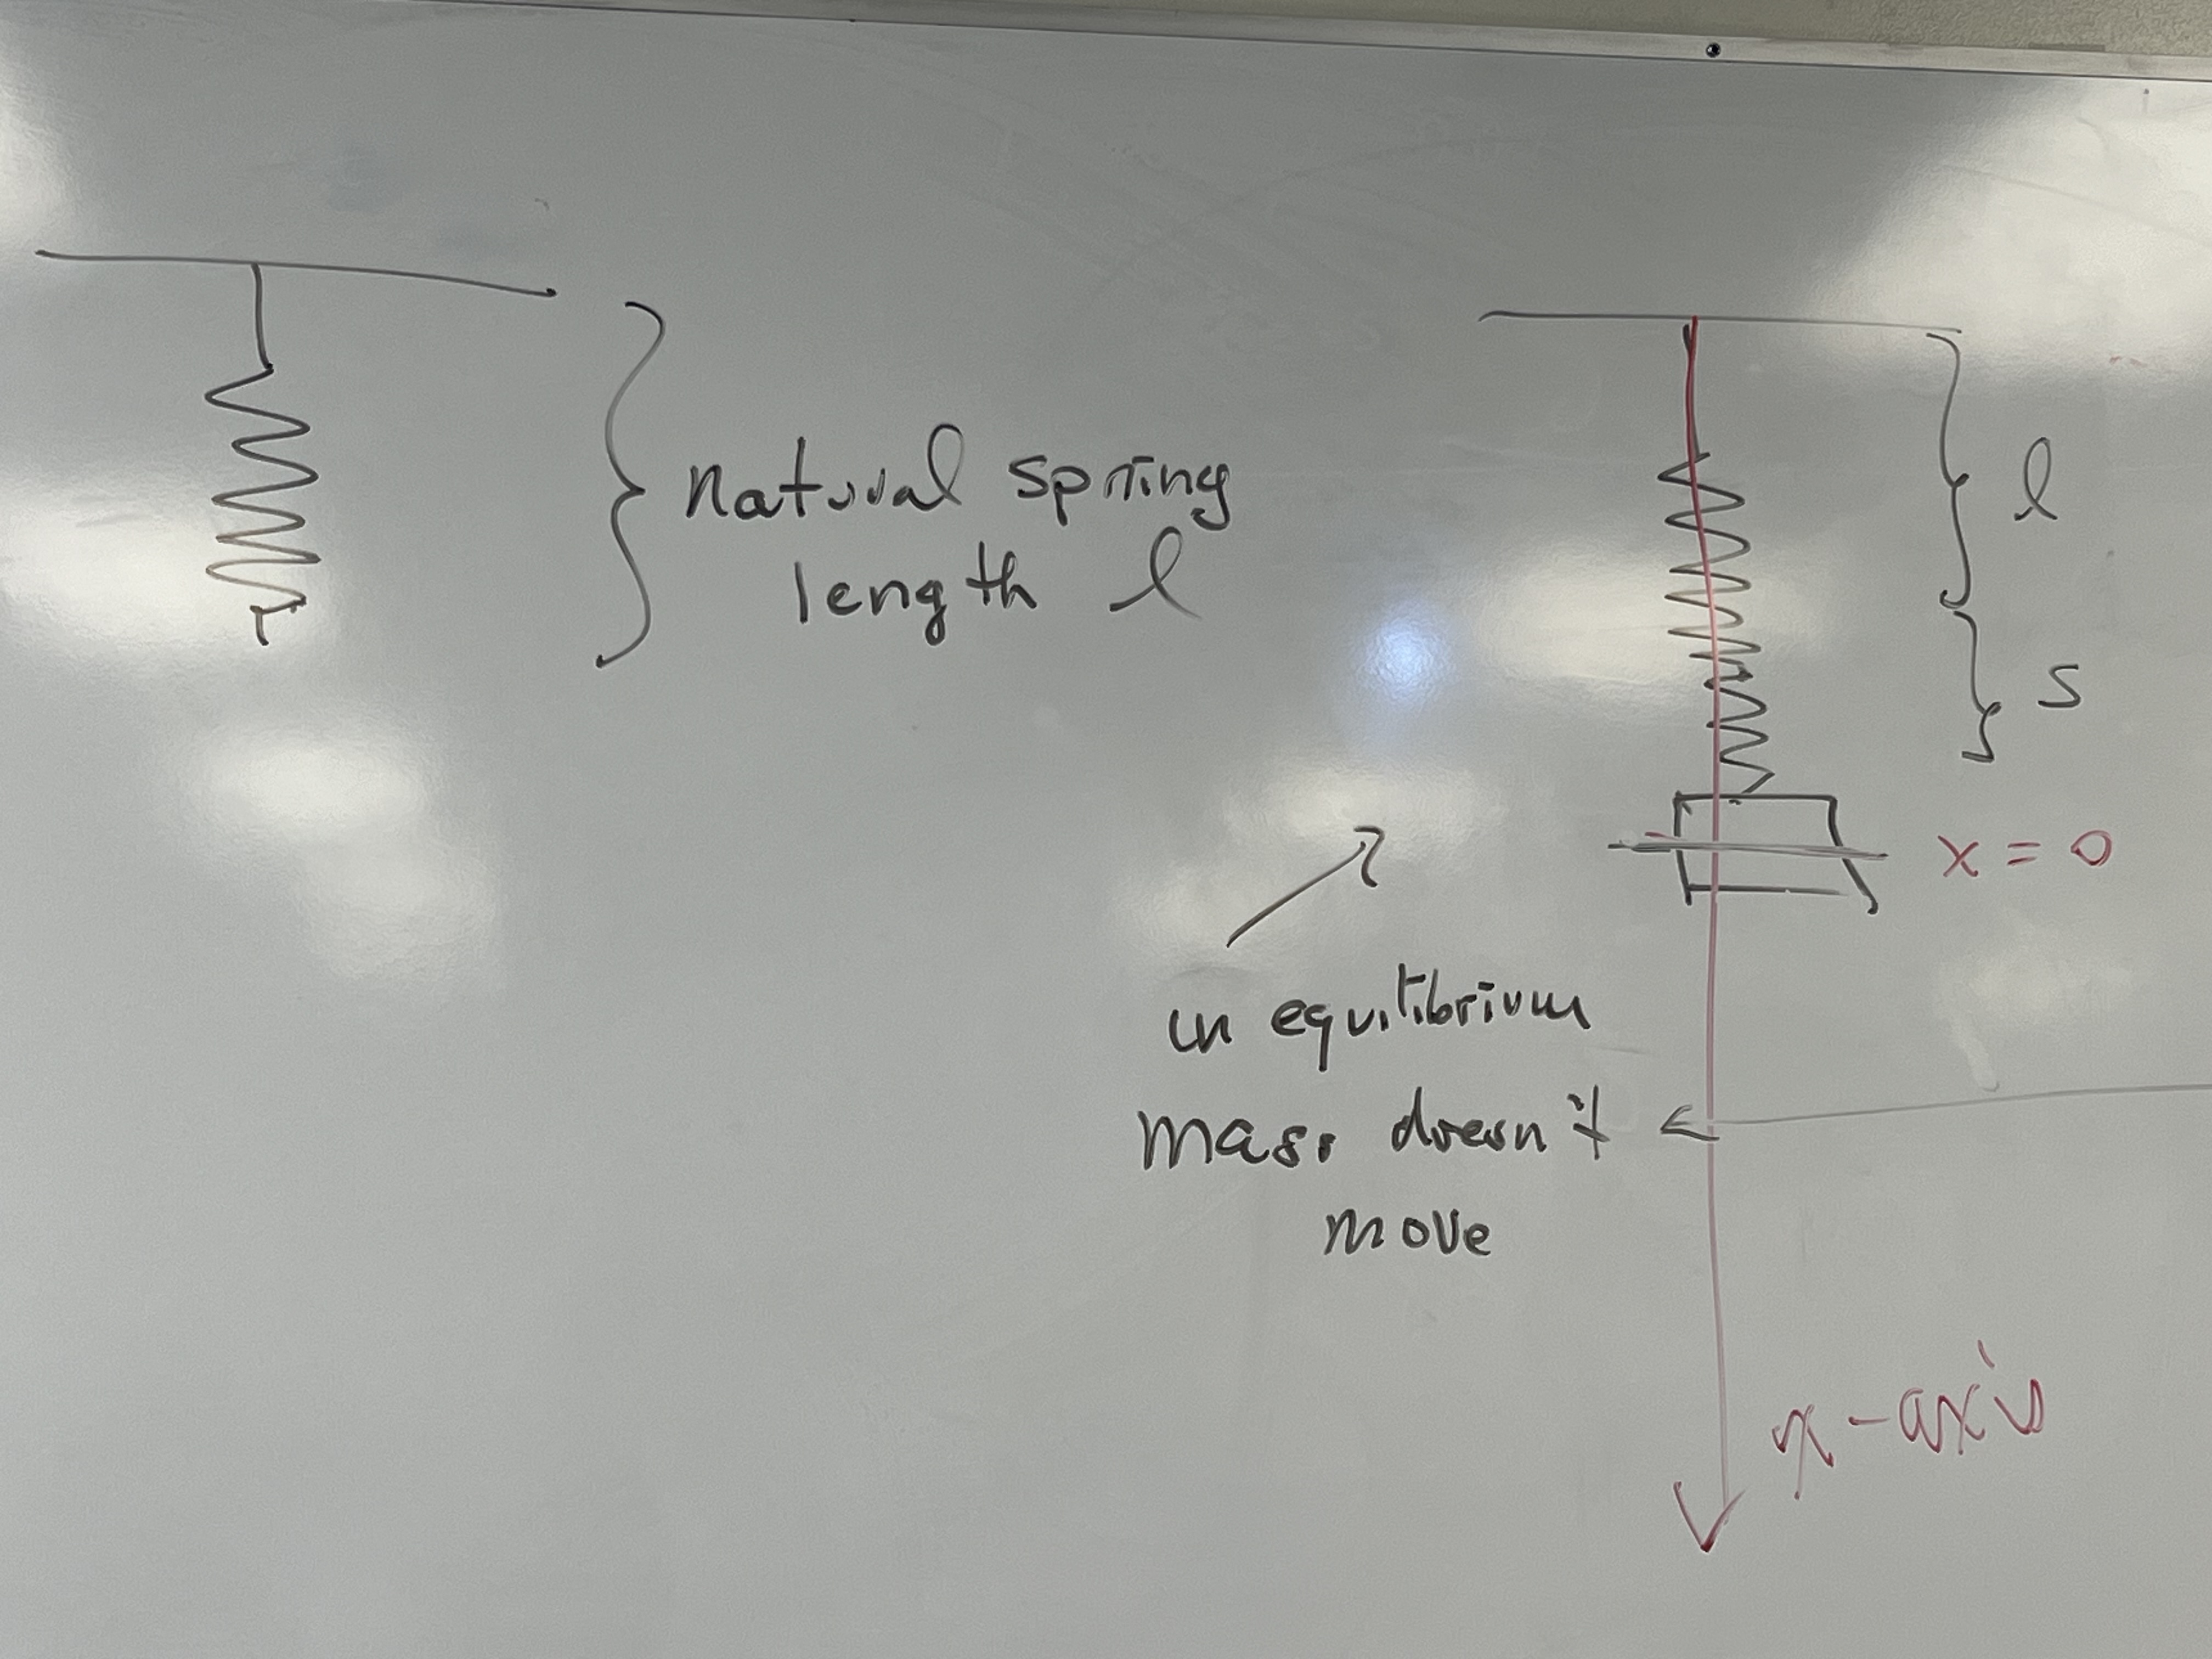 natural spring
length l
l
s
x = 0
in equilibrium
mass doesn't
move
x-axis